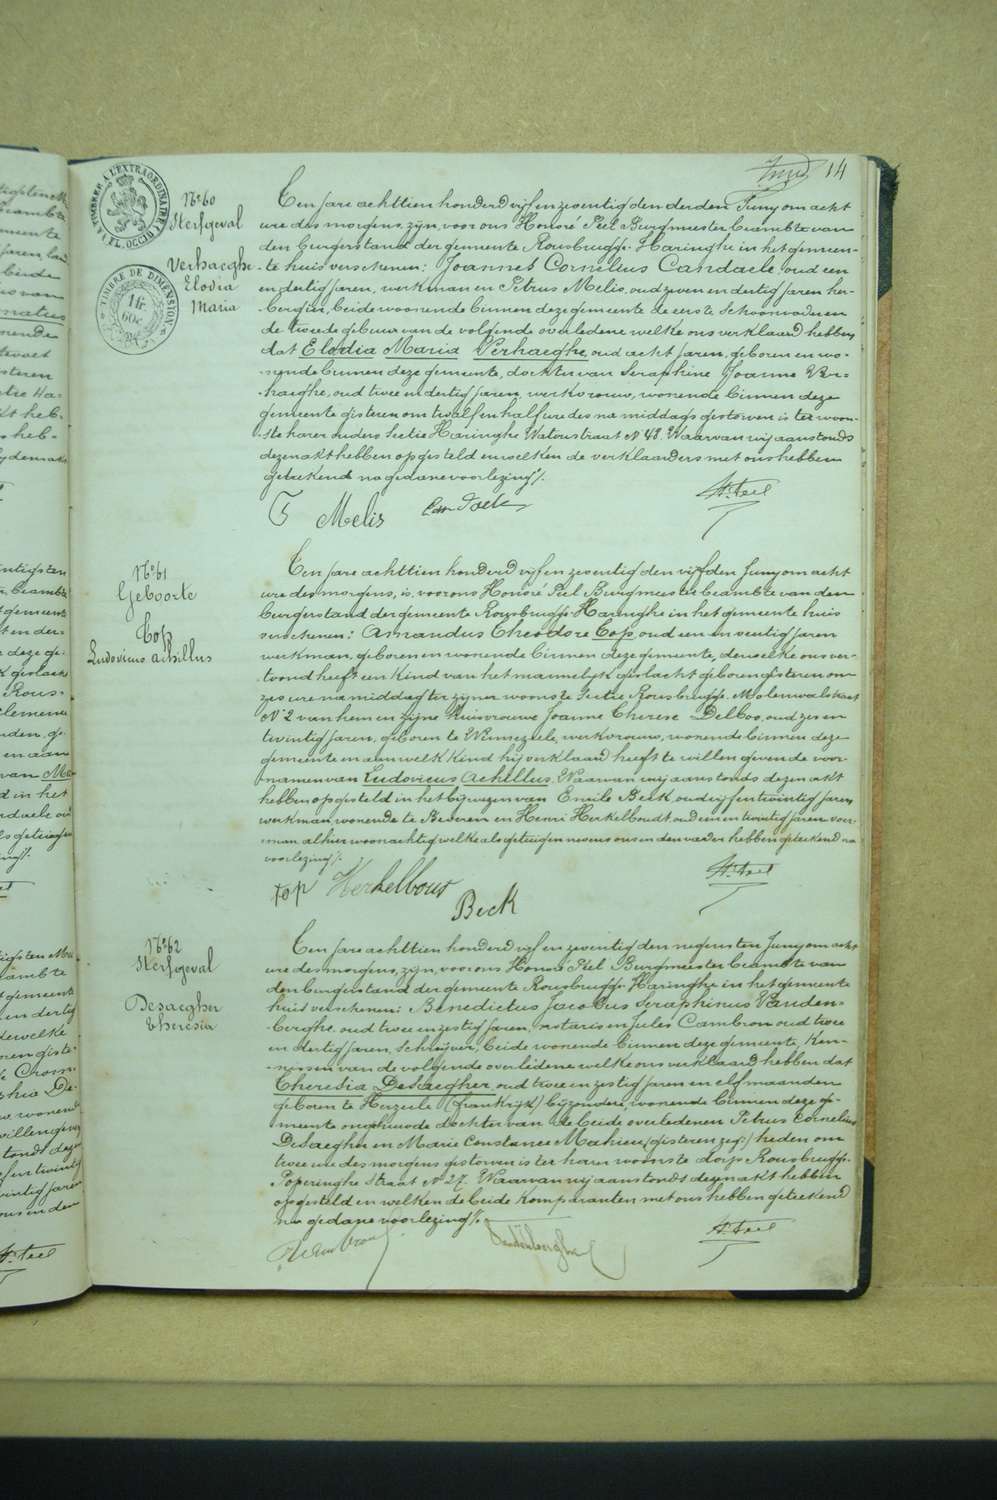 14
TIMBRER A L'EXTRAORDINAIRE
FL. OCCID
TIMBRE DE DIMENSION
1 fr
60c
No 60
Sterfgeval
Verhaeghe
Elodia
Maria
Ten Jare achttien honderd vijf en zeventig den derden Juny om acht
ure des morgens, zijn, voor ons Honoré Peel Burgmeester Beambte van
den burgerstand der gemeente Rousbrugge Haringhe in het gemeen-
te huis verschenen: Joannes Cornilius Candaele, oud een
en dertig jaren, werkman en Petrus Melis, oud zeven en dertig jaren her-
bergier, beide woonende binnen deze gemeente de eerste Schoonvader en
de tweede gebuur van de volgende overledene welke ons verklaard hebben
dat Elodia Maria Verhaeghe, oud acht jaren, geboren en wo-
nende binnen deze gemeente, dochter van Seraphine Joanne Ver-
haeghe, oud twee en dertig jaren, werkvrouw, wonende binnen deze
gemeente gisteren om twalf en half ure des na middags gestorven is ter woon-
ste harer ouders Sectie Haringhe Watoustraat No 48. Waarvan wij aanstonds
dezen akt hebben opgesteld en welken de verklaarders met ons hebben
geteekend na gedane voorlezing /.
Melis Candaele H. Peel
No 61
Geboorte
Top
Ludovicus Achillus
Ten Jare achttien honderd vijf en zeventig den vijfden Juny om acht
ure des morgens, is, voor ons Honoré Peel Burgmeester Beambte van den
burgerstand der gemeente Rousbrugge Haringhe in het gemeente huis
verschenen: Amandus Theodore Top, oud een en veertig jaren
werkman, geboren en wonende binnen deze gemeente, dewelke ons ver-
toond heeft een Kind van het mannelyk geslacht geboren gisteren om
zes ure na middag ter zijner woonste Sectie Rousbrugge Molenwalstraat
No 2 van hem en zijne huisvrouwe Joanne Therese Delbos, oud zes en
twintig jaren, geboren te Winnezeele, werkvrouw, wonende binnen deze
gemeente en aan welk Kind hij verklaard heeft te willen geven de voor-
namen van Ludovicus Achillus. Waarvan wij aanstonds dezen akt
hebben opgesteld in het bijwezen van Emile Beck, oud vijf en twintig jaren,
werkman, wonende te Beveren en Henri Herkelboudt oud een en twintig jaren voer-
man alhier woonachtig welke als getuigen nevens ons en den vader hebben geteekend na
voorlezing /.
top Herkelbout Beck H. Peel
No 62
Sterfgeval
Desaegher
Theresia
Ten Jare achttien honderd vijf en zeventig den negensten Juny om acht
ure des morgens, zijn, voor ons Honoré Peel Burgmeester Beambte van
den burgerstand der gemeente Rousbrugge Haringhe in het gemeente
huis verschenen: Benedictus Jacobus Seraphinus Vanden-
berghe, oud twee en zestig jaren, notaris en Jules Cambron oud twee
en dertig jaren, Schrijver, beide wonende binnen deze gemeente, Ken-
nessen van de volgende overledene welke ons verklaard hebben dat
Theresia Desaegher, oud twee en zestig jaren en elf maanden
geboren te Herzeele (frankrijk) bijzondere, wonende binnen deze ge-
meente ongehuwde dochter van de beide overledenen Petrus Cornelius
Desaegher en Marie Constance Mahieu (gisteren zegs) heden om
twee ure des morgens gestorven is ter harer woonste dorp Rousbrugge
Poperinghe Straat No 27. Waarvan wij aanstonds dezen akt hebben
opgesteld en welken de beide Komparanten met ons hebben geteekend
na gedane voorlezing /.
Vandenberghe H. Peel